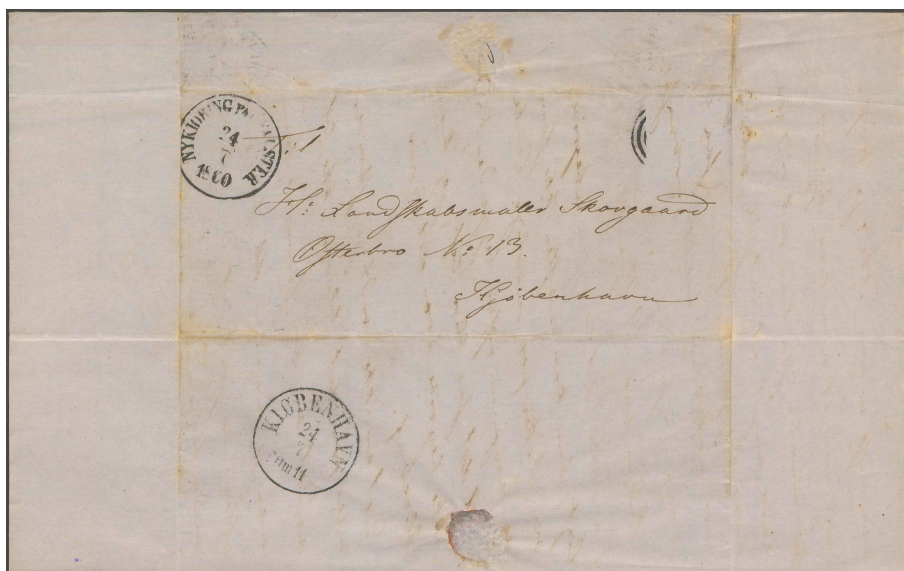 NYKIØBING PAA FALSTER
24
7
1860
Hr: Landskabsmaler Skovgaard
Østerbro No: 13.
Kjøbenhavn
KIØBENHAVN
24
7